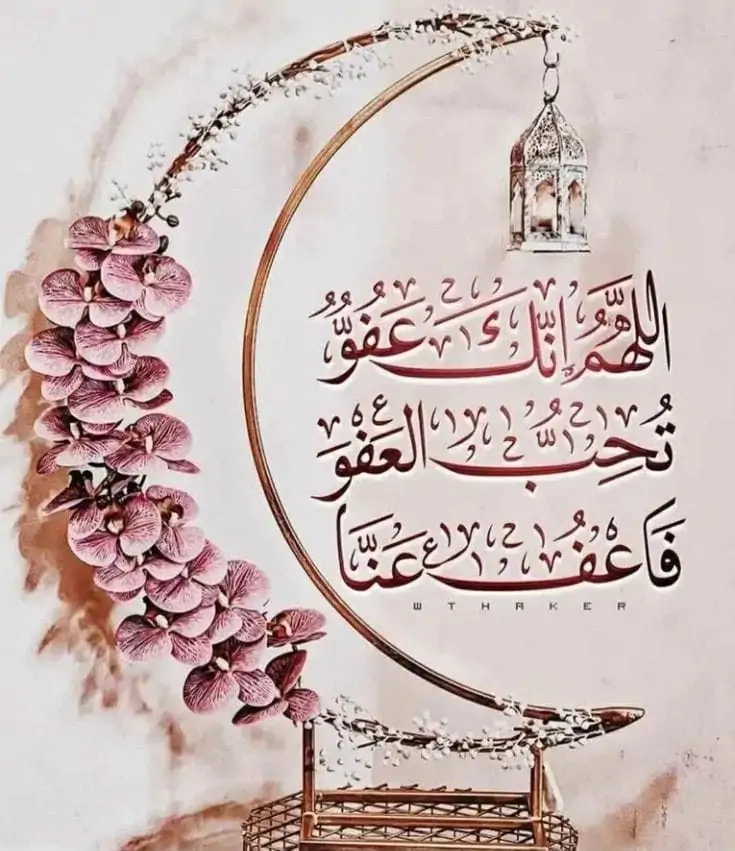 اللَّهُمَّ إِنَّكَ عَفُوٌّ
تُحِبُّ العَفْوَ
فَاعْفُ عَنَّا
WTHAKER